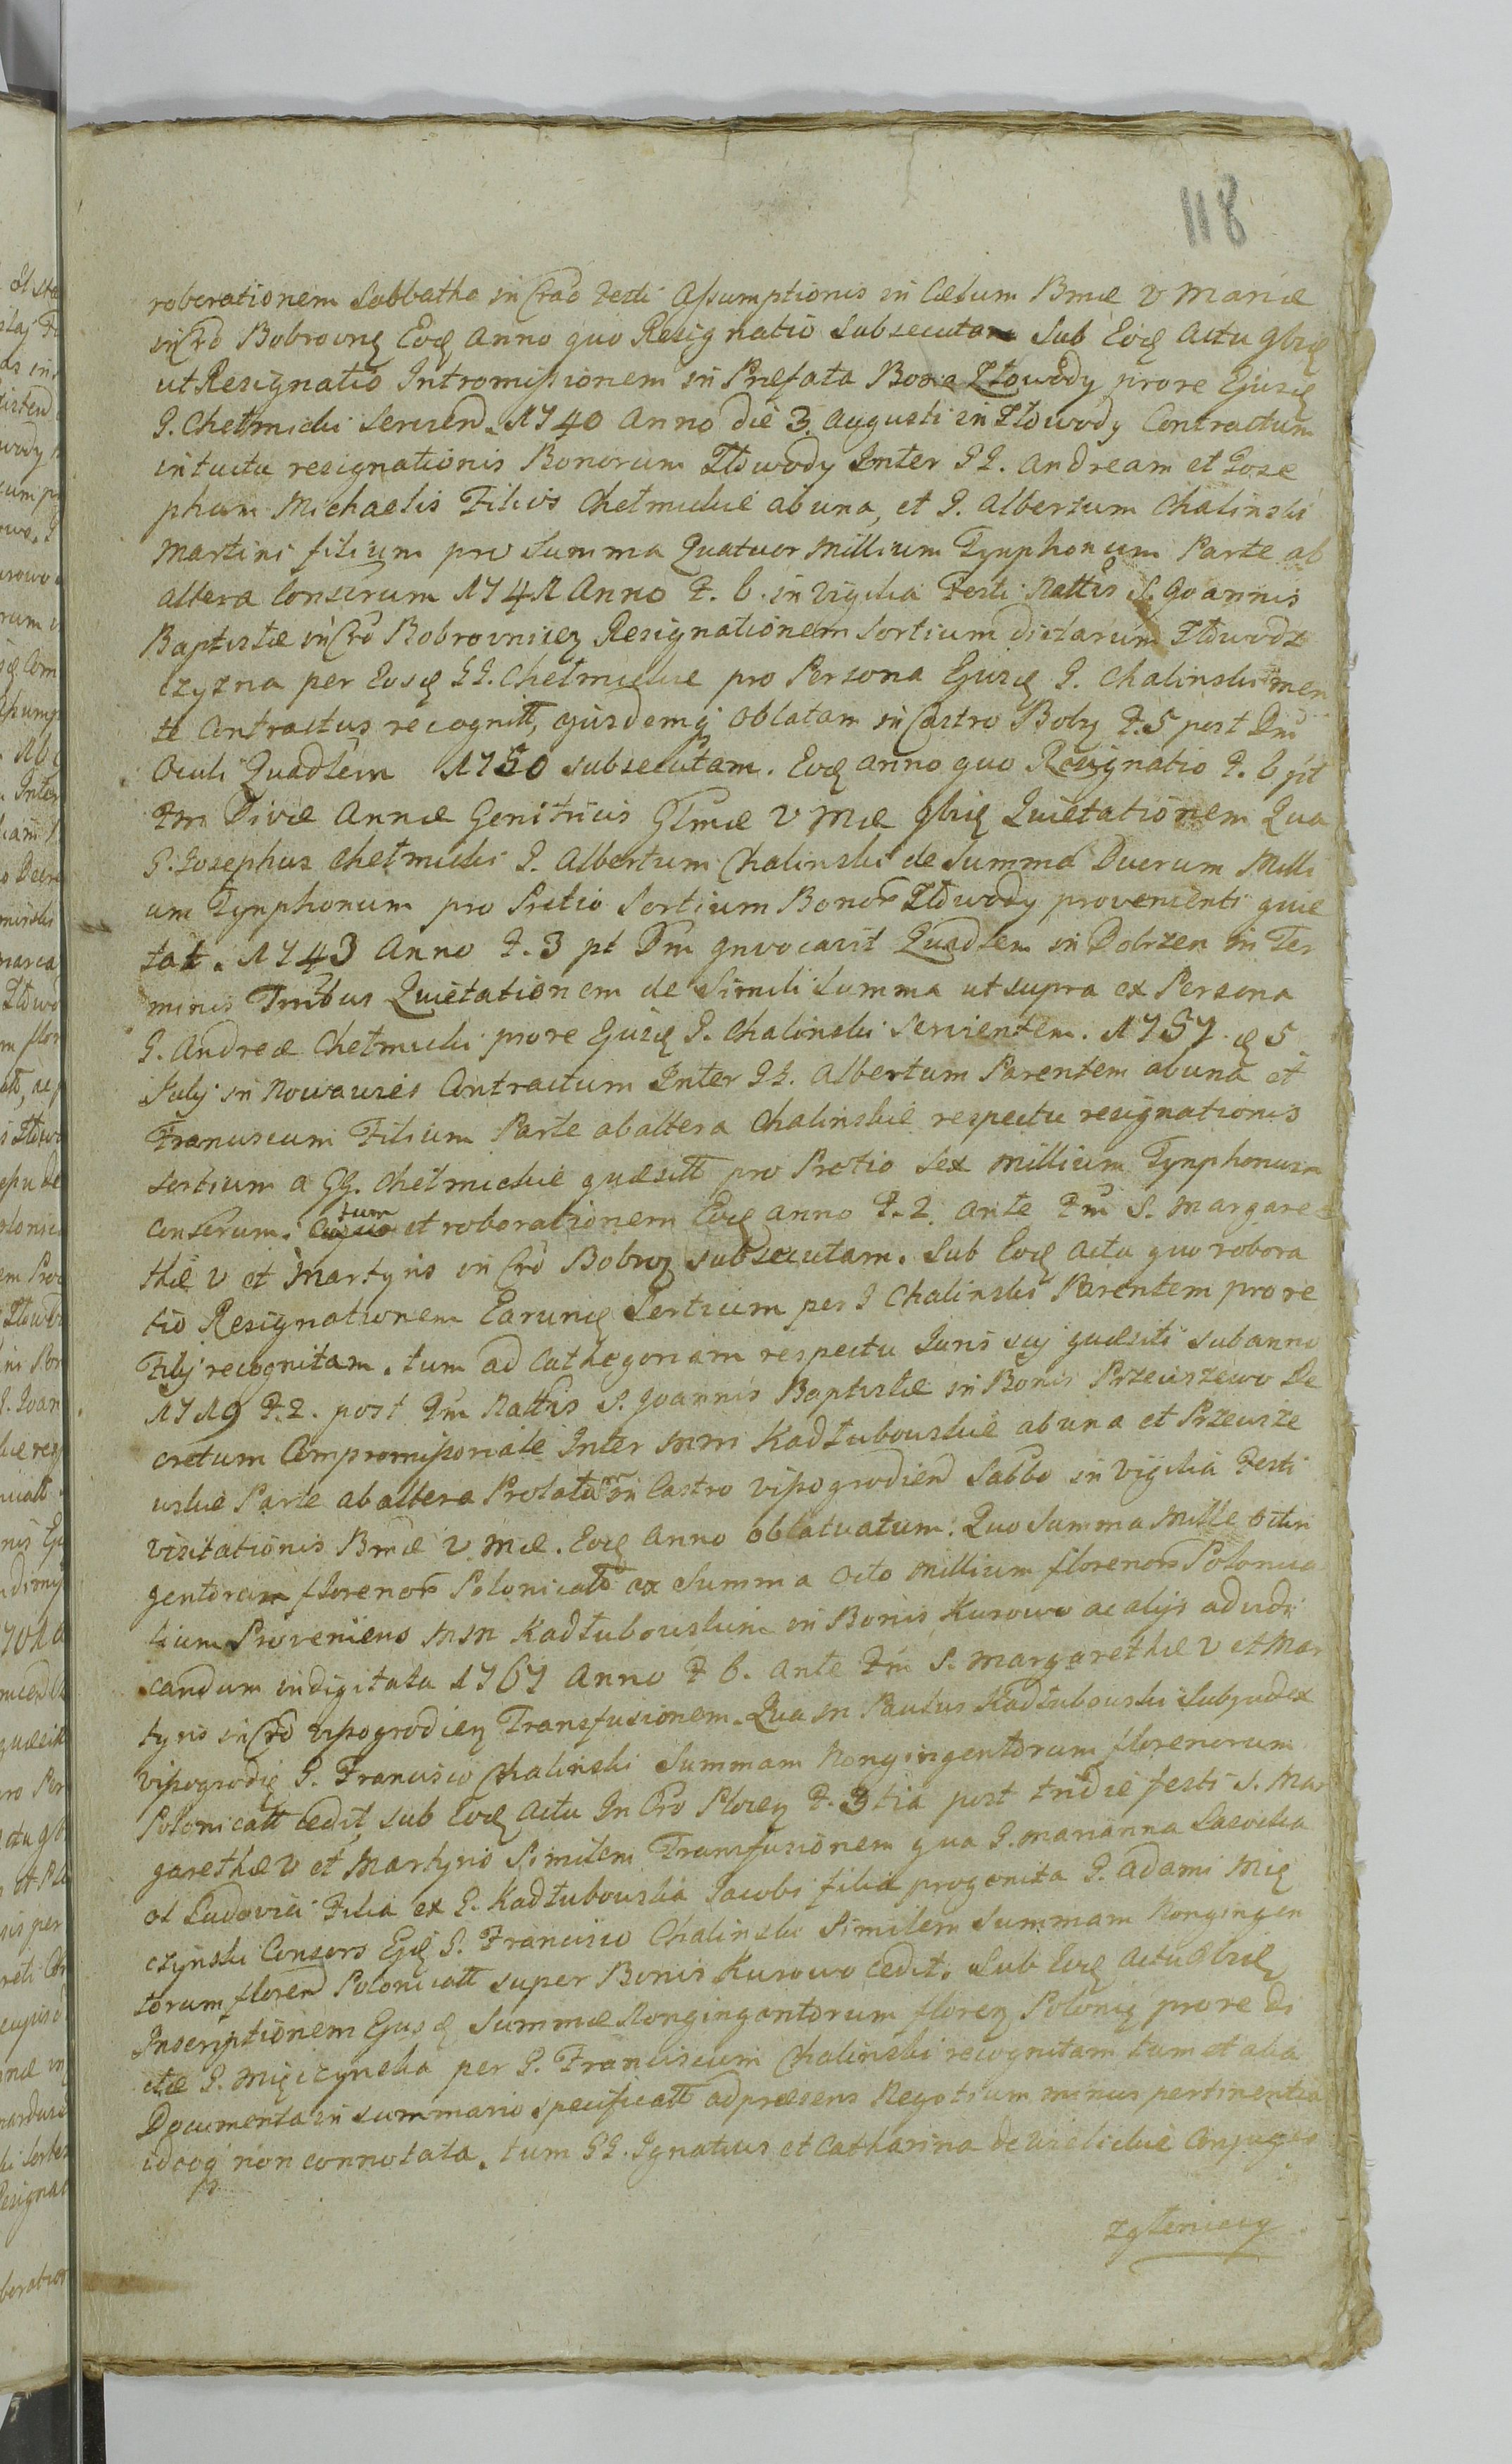 118
roborationem Sabbatho in Crāō Festi Assumptionis in Cælum Bmæ V Mariæ
in Crō Bobrovnę Eoę Anno quo Resignatio Subsecutam Sub Eoę Actu
ut Resignatio Intromissionem in Præfata Bona Złowody pro re Ejusę
G. Chełmicki Serviend. 1740 Anno die 3. Augusti in Złowody Contractum
intuitu resignationis Bonorum Złowody Inter GG. Andream et Jose
phum Michaelis Filios Chełmickie ab una, et G. Albertum Chalinski
Martini filium pro Summa Quatuor Millium Tynphonum Parte ab
altera Conscrum 1741 Anno F. 6. in Vigilia Festi Nattis S. Joannis
Baptistæ in Crō Bobrovnicę Resignationem Sortium dictarum Złowodz
czyzna per Eosę GG. Chełmickie pro Persona Ejusę G. Chalinski men
te Contractus recognitt, ejusdemq Oblatam in Castro Bobr F. 5 post Dm
Oculi Quadlem 1750 subsecutam. Eoę anno quo Resignatio F. 6 pt
Fm Divæ Annæ Genitricis Glmæ V Mæ Quietationem Qua
G. Josephus Chełmicki G. Albertum Chalinski de Summa Duorum Milli
um Tynphonum pro Pretio Sortium Bonor Złowody provenienti quie
tat. 1743 Anno F. 3 pt Dm Invocavit Quadlem in Dobrzen in Ter
minis Tribus Quietationem de Simili Summa ut supra ex Persona
G. Andreæ Chełmicki pro re Ejusę G. Chalinski Servientem. 1757. ę 5
Julij in Nowawies Contractum Inter GG. Albertum Parentem ab una et
Franciscum Filium Parte ab altera Chalinskie respectu resignationis
Sortium a GG. Chełmickie quæsitt pro Pretio Sex Millium Tynphonum
Conscrum. tum et roborationem Eoę Anno F. 2. ante Fm S. Margare
thæ V et Martyris in Crō Bobroę subsecutam. Sub Eoę Actu quo robora
tio Resignationem Earunę Sortium per G Chalinski Parentem pro re
Filij recognitam. tum ad Cathegoriam respectu Juris sui quæsiti sub anno
1719 F. 2. post Fm Nattis S. Joannis Baptistæ in Bonis Przeciszewo De
cretum Compromissoriale Inter MM Kadłubowskie ab una et Przecisze
wskie Parte ab altera Prolatum in Castro Vissogrodien Sabbo in Vigilia Festi
Visitationis Bmæ V. Mæ. Eoę Anno oblatuatum. Quo Summa Mille octin
gentorum florenor Polonicatt ex Summa Octo Millium florenor Polonica
lium Proveniens MM Kadłubowskim in Bonis Kurowo ac alijs adudi
candum indigitata 1767 Anno F 6. ante Fm S. Margarethæ V et Mar
tyris in Crō Vissogrodieę Transfusionem. Qua M Paulus Kadłubowski Subjudex
Vissogrodię G. Francisco Chalinski Summam Nongingentorum florenorum
Polonicatt cedit, sub Eoę Actu In Crō Ploceę F. 3tia post tridie festi S. Mar
garethæ V et Martyris Similem Transfusionem qua G. Marianna Lasocka
ol Ludovici Filia ex G. Kadłubowska Jacobi filia progenita G. Adami Mię
czynski Consors Eję G. Francisco Chalinski Similem Summam Nongingen
torum floren Polonicatt super Bonis Kurowo cedit. Sub Eoę Actu
Inscriptionem Ejusę Summæ Nongingentorum floreę Polonię pro re di
ctæ G. Mięczynska per G. Franciscum Chalinski recognitam tum et alia
Documenta in summario specificatt ad præsens Negotium minus pertinentia
ideoq non connotata. tum GG. Ignatius et Catharina de Conjuges
Zgleniccy